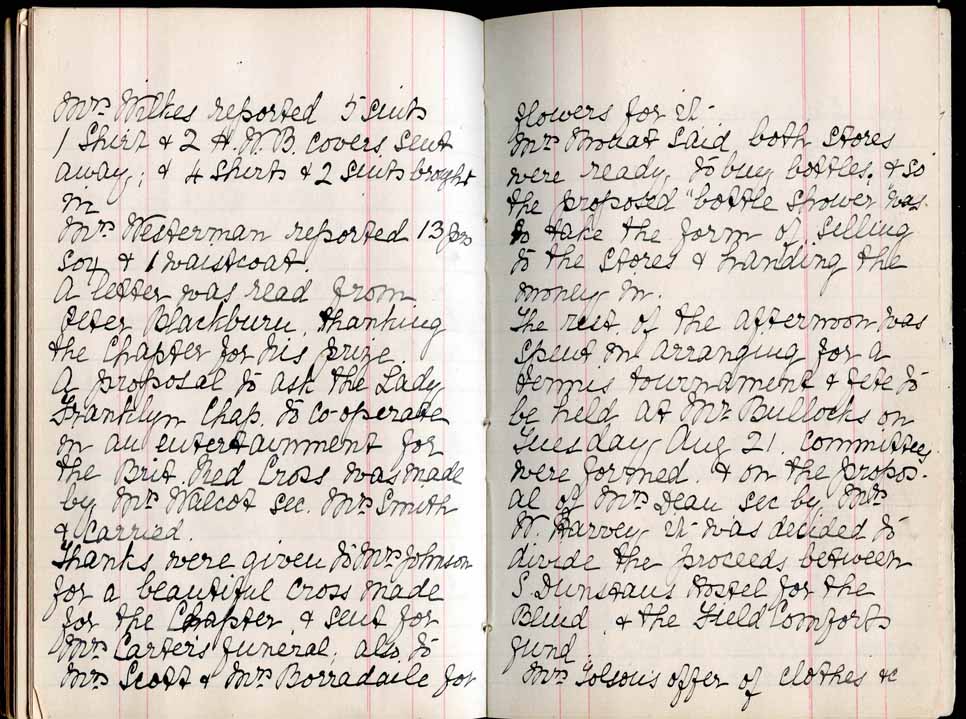 Mrs Wilkes reported 5 suits
1 Shirt & 2 H.W.B. covers sent
away; & 4 shirts & 2 suits brought
in
Mrs Westerman reported 13 prs
sox & 1 waistcoat.
A letter was read from
Peter Blackburn, thanking
the Chapter for his prize.
A proposal to ask the Lady
Franklyn Chap. to co-operate
in an entertainment for
the Brit. Red Cross was made
by Mrs Walcot sec. Mrs Smith
& Carried.
Thanks were given to Mrs Johnson
for a beautiful cross made
for the Chapter & sent for
Mrs Carter's funeral; also to
Mrs Scott & Mrs Borradaile for
flowers for it.
Mrs Mouat said both stores
were ready to buy bottles, & so
the proposed "bottle shower" was
to take the form of selling
to the stores & handing the
money in.
The rest of the afternoon was
spent in arranging for a
tennis tournament & fete to
be held at Mr Bullocks on
Tuesday, Aug 21. Committees
were formed & on the propos-
al of Mrs Dean sec by Mrs
W. Harvey it was decided to
divide the proceeds between
S. Dunstans Hostel for the
Blind & the Field Comforts
fund.
Mrs Tolson's offer of clothes &c